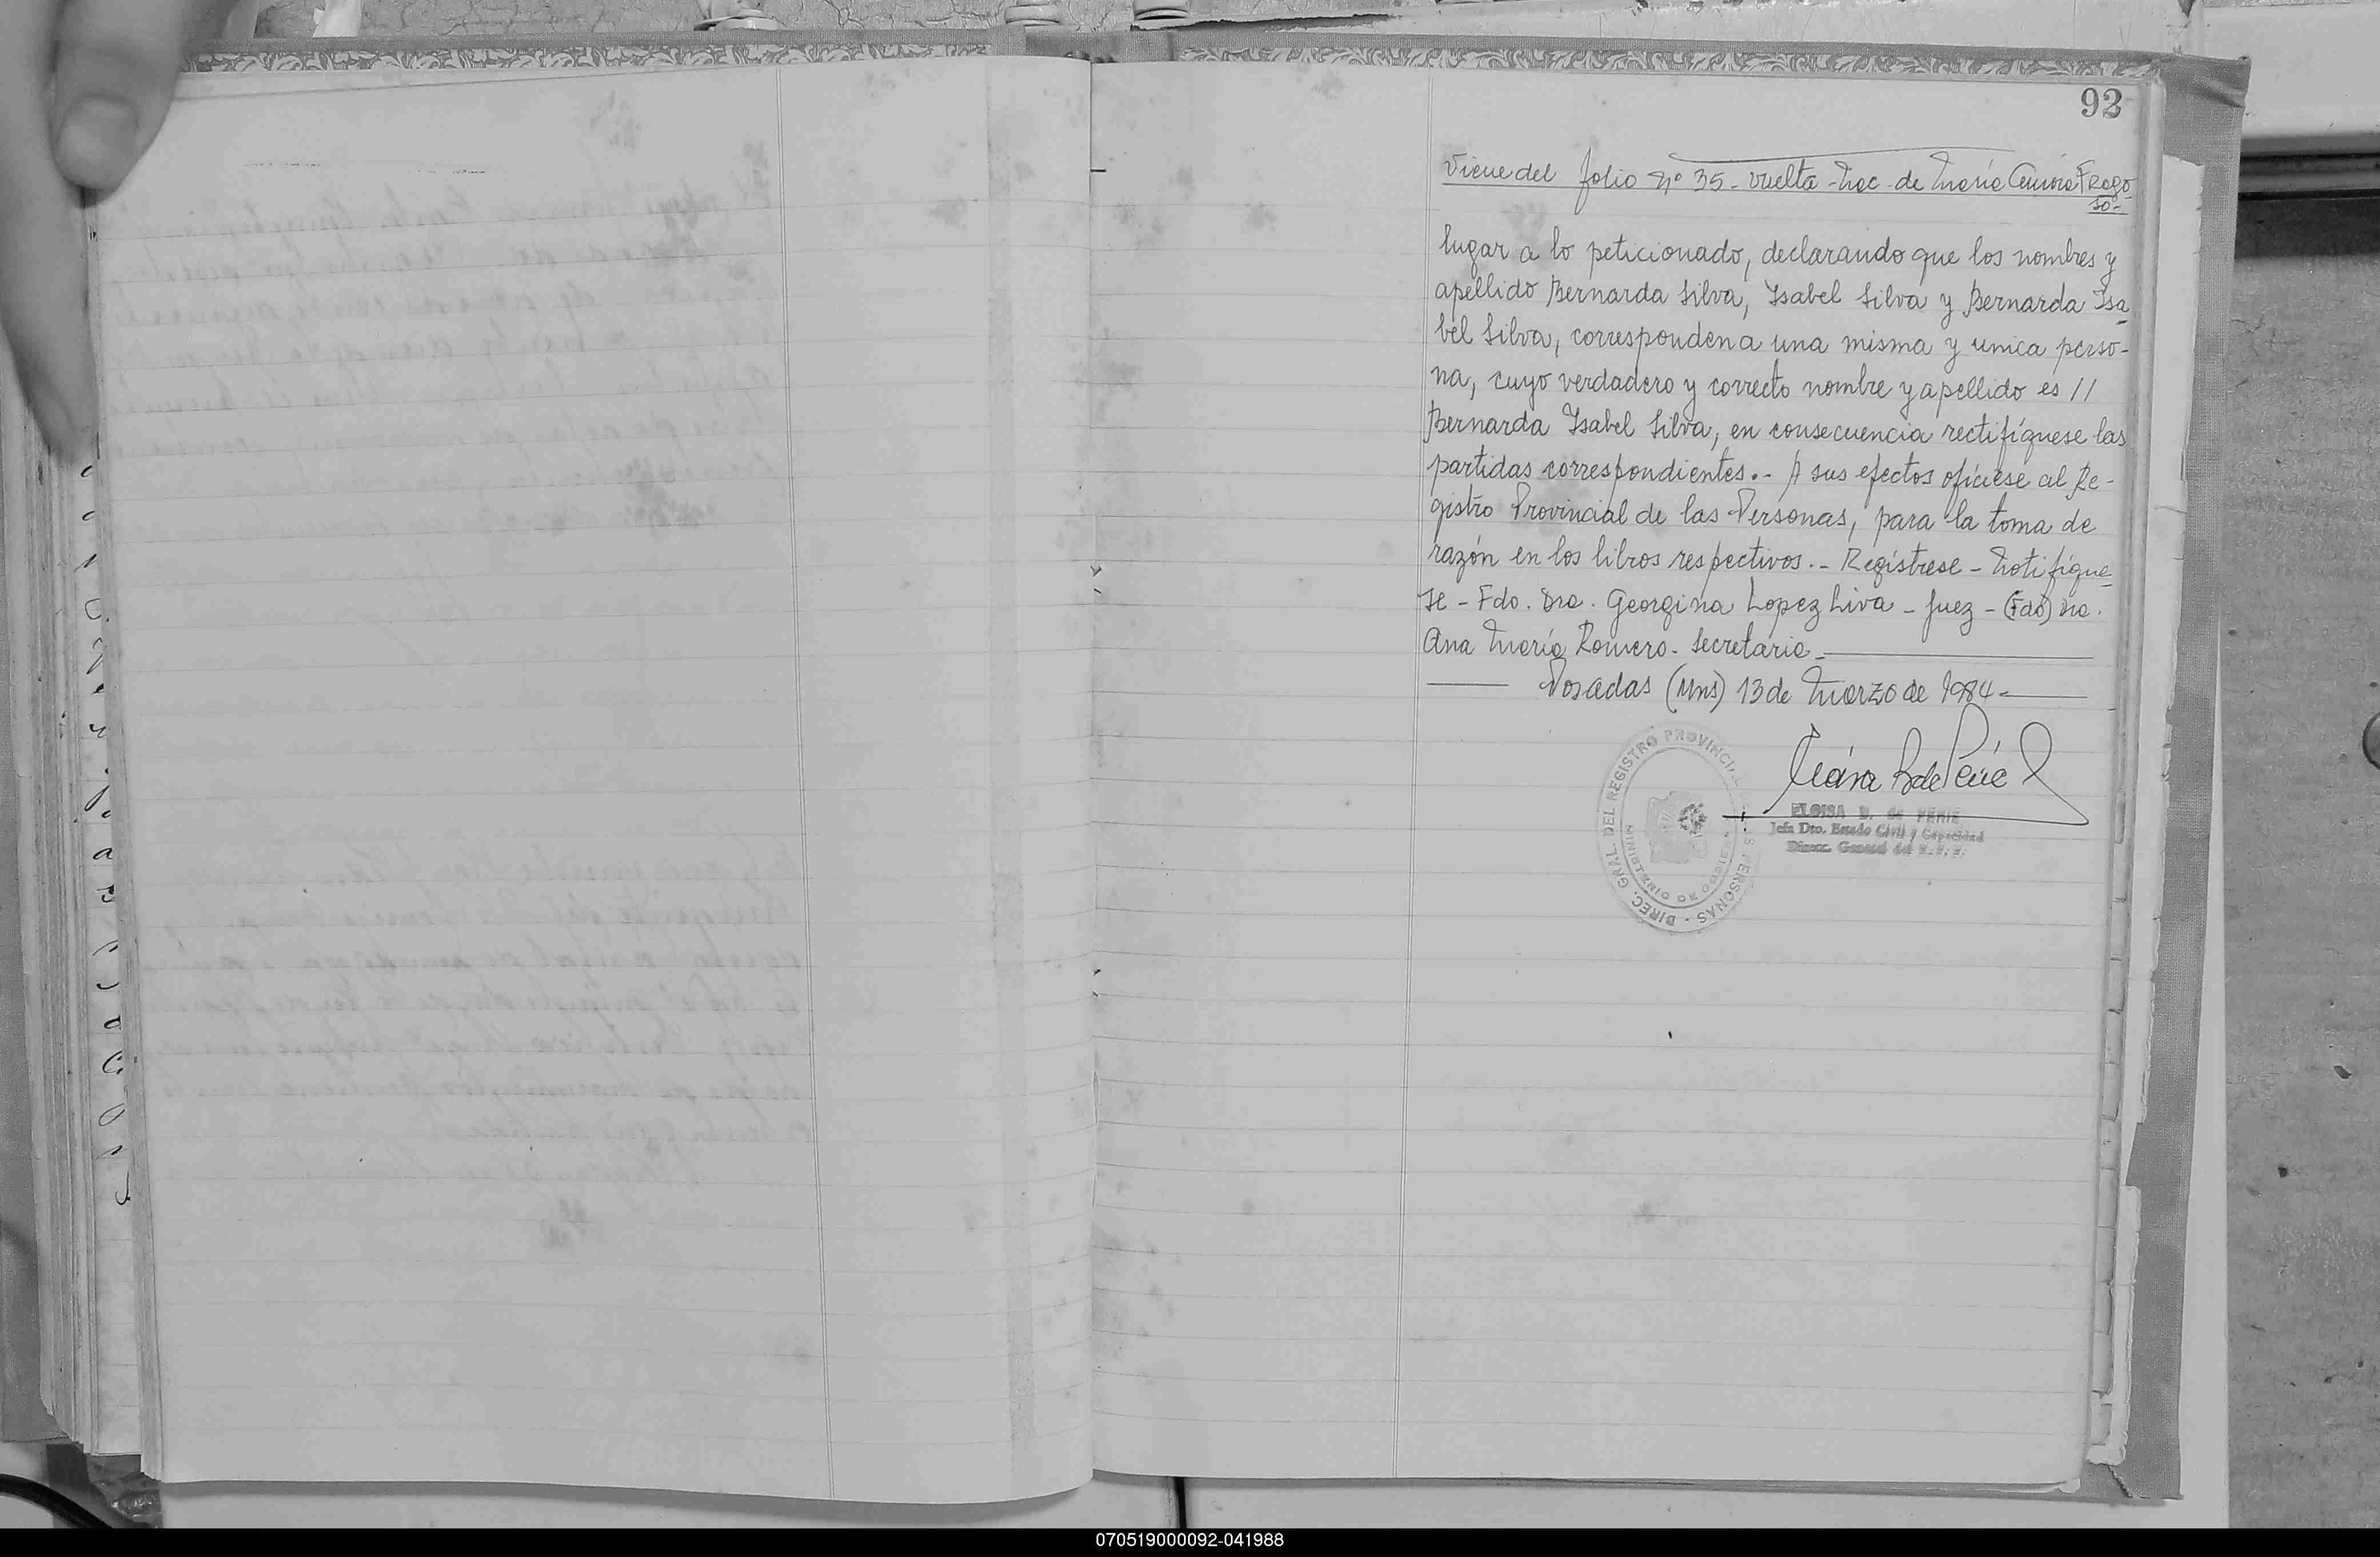 92
Viene del folio Nº 35 - vuelta - Nac. de María Frago
so-
lugar a lo peticionado, declarando que los nombres y
apellido Bernarda Silva, Isabel Silva y Bernarda Isa
bel Silva, corresponden a una misma y unica perso-
na, cuyo verdadero y correcto nombre y apellido es //
Bernarda Isabel Silva, en consecuencia rectifíquese las
partidas correspondientes.- A sus efectos ofíciese al Re-
gistro Provincial de las Personas, para la toma de
razón en los libros respectivos.- Regístrese - Notifíque
se - Fdo. Dra. Georgina Lopez Liva - Juez - (Fdo) Dra.
Ana María Romero - Secretaria -
Posadas (Mns) 13 de Marzo de 1984 -
DIREC. GRAL. DEL REGISTRO PROVINCIAL PERSONAS
MINISTERIO DE GOBIERNO
ELOISA B. de PERIE
Jefa Dto. Estado Civil y Capacidad
Direcc. General del R. P. P.
070519000092-041988